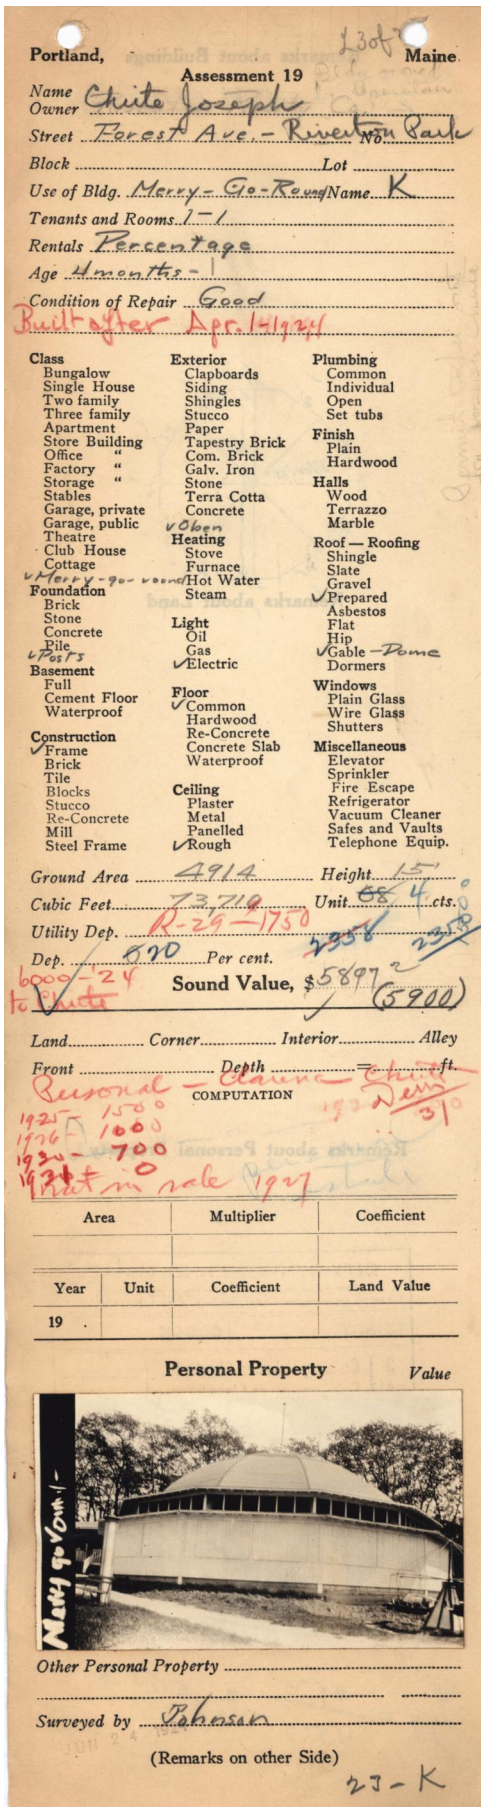 L3 of
Portland, Maine.
Assessment 19
Name
Owner Chute Joseph
Street Forest Ave. - Riverton Park No.
Block Lot
Use of Bldg. Merry-Go-Round Name K
Tenants and Rooms 1-1
Rentals Percentage
Age 4 months - 1
Condition of Repair Good
Built after Apr. 1-1924
Class
Bungalow
Single House
Two family
Three family
Apartment
Store Building
Office "
Factory "
Storage "
Stables
Garage, private
Garage, public
Theatre
Club House
Cottage
✓Merry-go-round
Foundation
Brick
Stone
Concrete
Pile
✓Posts
Basement
Full
Cement Floor
Waterproof
Construction
✓Frame
Brick
Tile
Blocks
Stucco
Re-Concrete
Mill
Steel Frame
Exterior
Clapboards
Siding
Shingles
Stucco
Paper
Tapestry Brick
Com. Brick
Galv. Iron
Stone
Terra Cotta
Concrete
✓Open
Heating
Stove
Furnace
Hot Water
Steam
Light
Oil
Gas
✓Electric
Floor
✓Common
Hardwood
Re-Concrete
Concrete Slab
Waterproof
Ceiling
Plaster
Metal
Panelled
✓Rough
Plumbing
Common
Individual
Open
Set tubs
Finish
Plain
Hardwood
Halls
Wood
Terrazzo
Marble
Roof — Roofing
Shingle
Slate
Gravel
✓Prepared
Asbestos
Flat
Hip
✓Gable - Dome
Dormers
Windows
Plain Glass
Wire Glass
Shutters
Miscellaneous
Elevator
Sprinkler
Fire Escape
Refrigerator
Vacuum Cleaner
Safes and Vaults
Telephone Equip.
Ground Area 4914 Height 15'
Cubic Feet 73,710 Unit 08 4 cts.
Utility Dep. R-29-1750 2358 2350
Dep. 20 Per cent.
6000-'24
to Chute
Sound Value, $ 5897
(5900)
Land Corner Interior Alley
Front Depth = ft.
Personal - Chute
COMPUTATION
Dem
310
1925- 1500
1926- 1000
1930- 700
1931- 0
Not in sale 1927
Area Multiplier Coefficient
Year Unit Coefficient Land Value
19 .
Personal Property Value
Merry go round
Other Personal Property
Surveyed by Johnson
JUN 24 192
(Remarks on other Side)
23-K